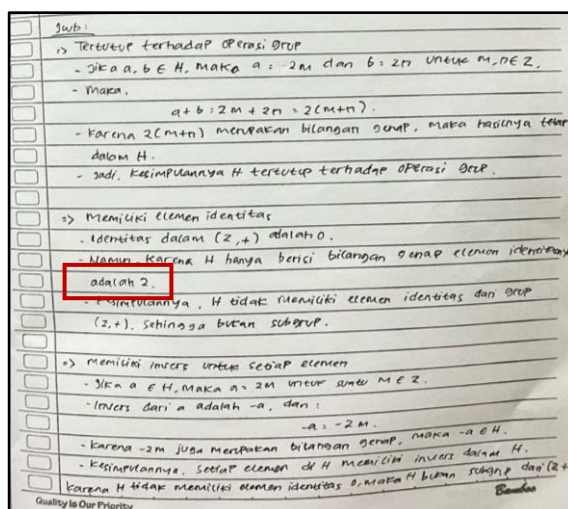 Jwb:
=> Tertutup terhadap operasi grup
- Jika a, b ∈ H, maka a = 2m dan b = 2n untuk m,n ∈ Z.
- Maka,
a + b = 2m + 2n = 2(m+n).
- Karena 2(m+n) merupakan bilangan genap, maka hasilnya tetap
dalam H.
- Jadi, kesimpulannya H tertutup terhadap operasi grup.
=> Memiliki elemen identitas
- Identitas dalam (Z,+) adalah 0.
- Namun, karena H hanya berisi bilangan genap elemen identitasnya
adalah 2.
- Kesimpulannya, H tidak memiliki elemen identitas dari grup
(Z,+), sehingga bukan subgrup.
=> Memiliki invers untuk setiap elemen
- Jika a ∈ H, maka a = 2m untuk suatu m ∈ Z.
- Invers dari a adalah -a, dan:
-a = -2m.
- Karena -2m juga merupakan bilangan genap, maka -a ∈ H.
- Kesimpulannya, setiap elemen di H memiliki invers dalam H.
Karena H tidak memiliki elemen identitas 0, maka H bukan subgrup dari (Z,+
Quality is Our Priority
Bamboo